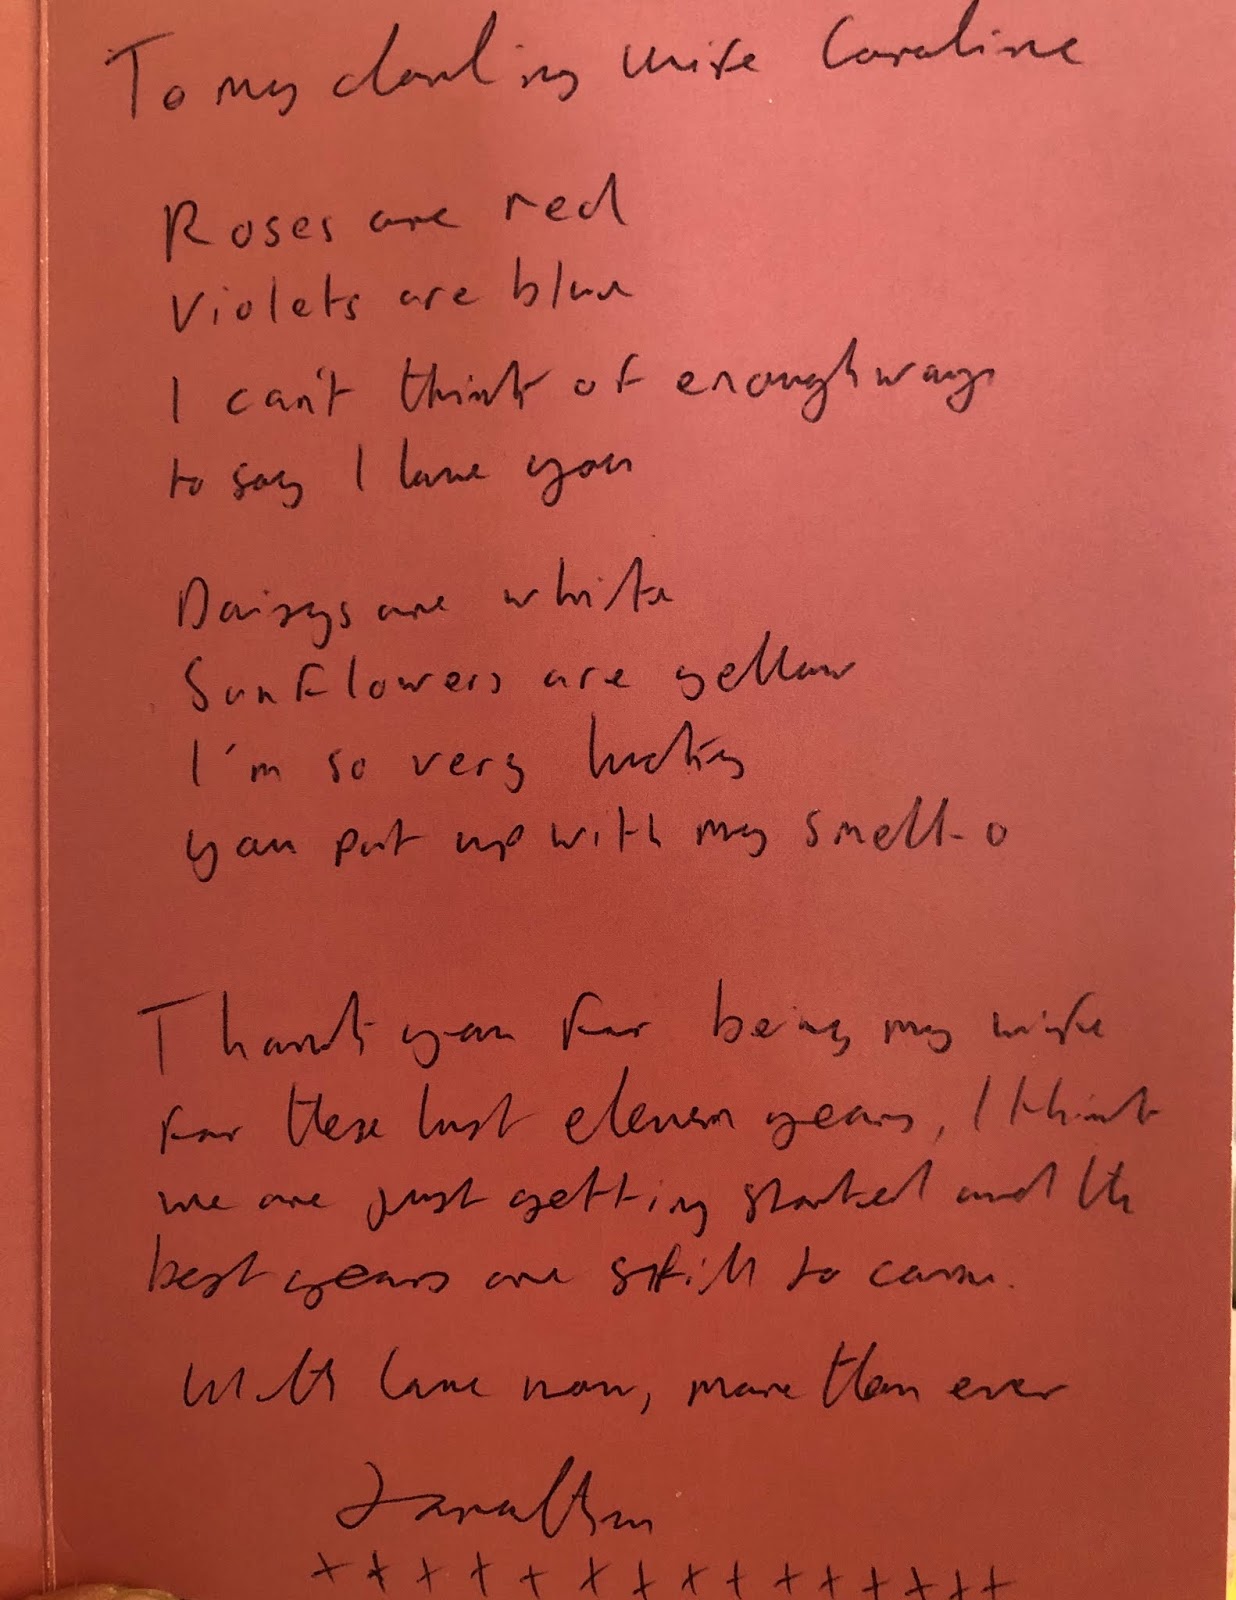 To my darling wife Caroline
Roses are red
Violets are blue
I can't think of enough ways
to say I love you
Daisys are white
Sunflowers are yellow
I'm so very lucky
you put up with my smell-o
Thank you for being my wife
for these last eleven years, I think
we are just getting started and the
best years are still to come.
With love now, more than ever
Jonathan
x x x x x x x x x x x x x x